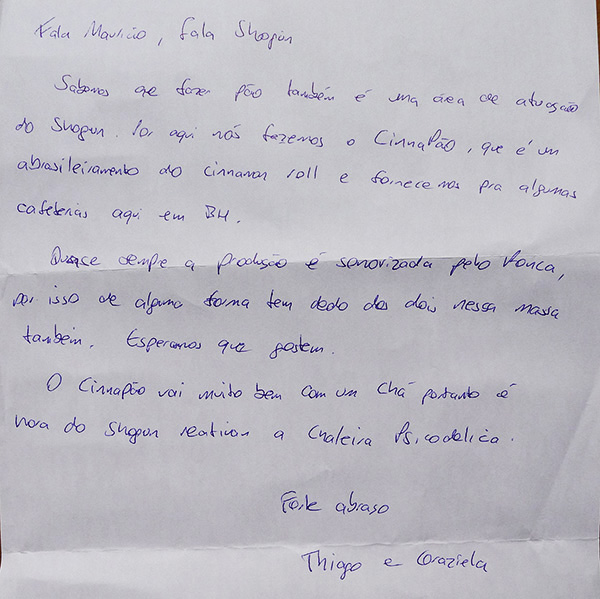 Fala Maurício, fala Shogun
Sabemos que fazer pão também é uma área de atuação
do Shogun. Por aqui nós fazemos o CinnaPão, que é um
abrasileiramento do cinnamon roll e fornecemos pra algumas
cafeterias aqui em BH.
Quase sempre a produção é sonorizada pelo Ronca,
por isso de alguma forma tem dedo dos dois nessa massa
também. Esperamos que gostem.
O Cinnapão vai muito bem com um chá portanto é
hora do Shogun reativar a Chaleira Psicodélica.
Forte abraso
Thiago e Graziela